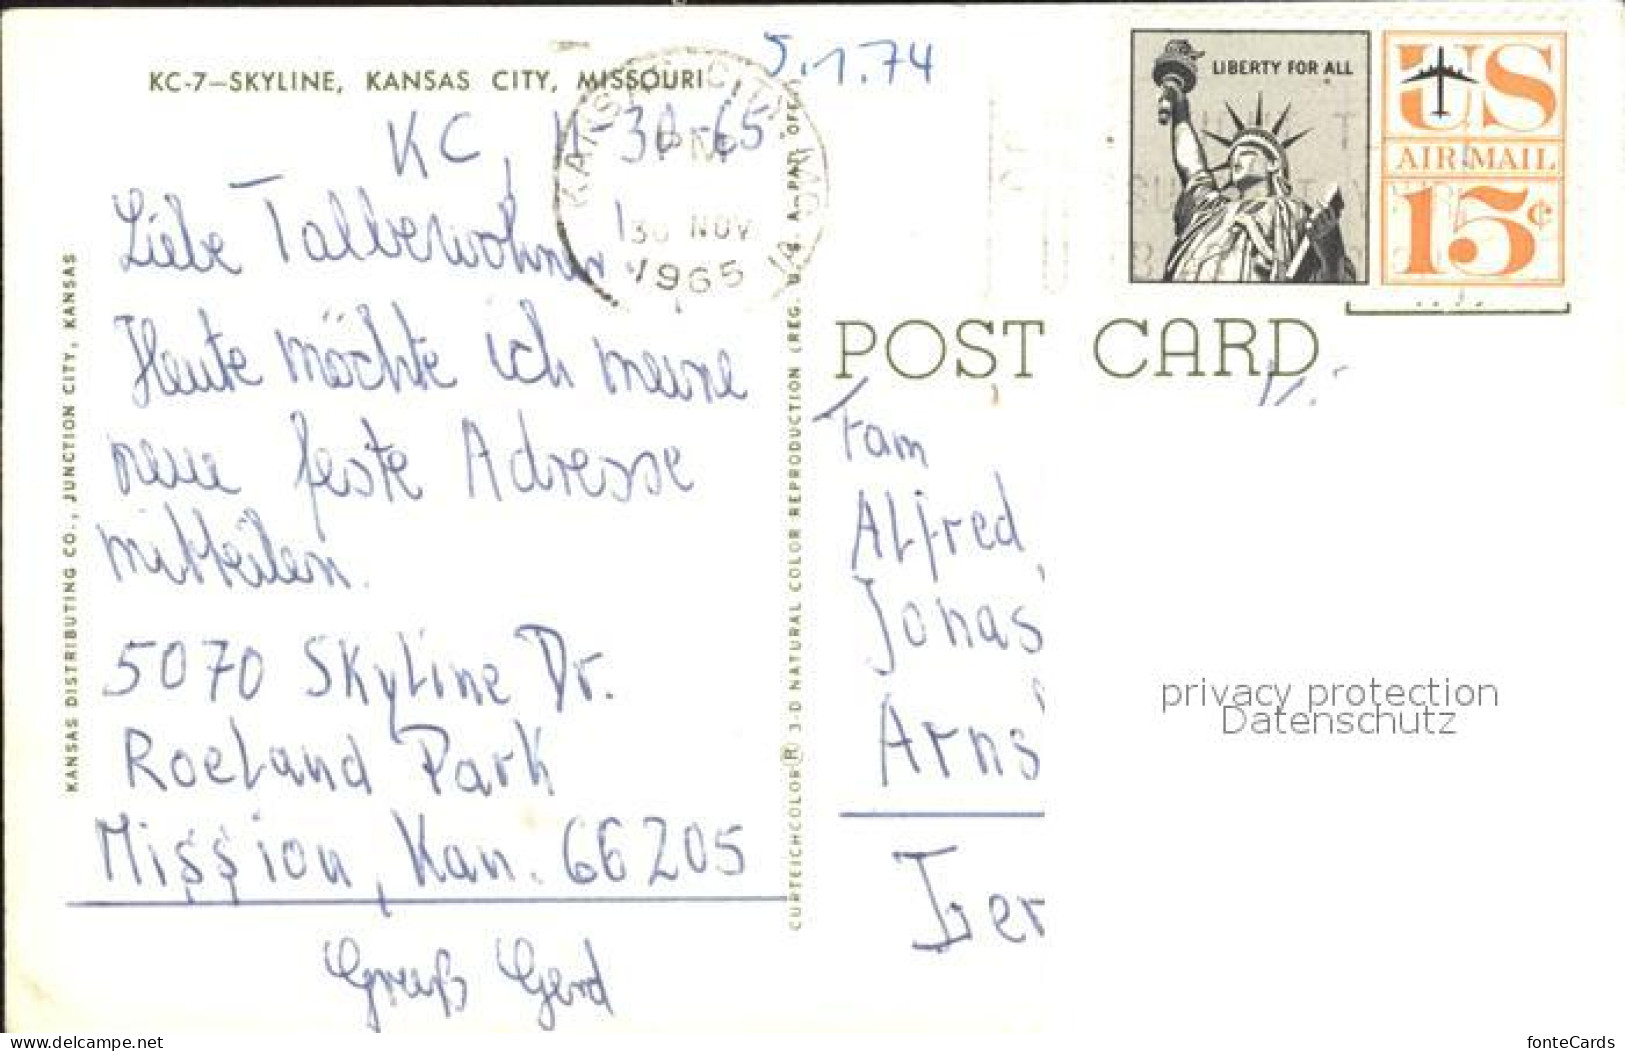 KC-7—SKYLINE, KANSAS CITY, MISSOURI
5.1.74
KC, 11-30-65
KANSAS CITY
PM
30 NOV
1965
Liebe Talbewohner
Heute möchte ich meine
neue feste Adresse
mitteilen.
5070 Skyline Dr.
Roeland Park
Mission, Kan. 66205
Gruß Gerd
KANSAS DISTRIBUTING CO., JUNCTION CITY, KANSAS
CURTEICHCOLOR ® 3-D NATURAL COLOR REPRODUCTION (REG. U. S. A. PAT. OFF.)
LIBERTY FOR ALL
US
AIR MAIL
15¢
POST CARD
Fam
Alfred
Jonas
Arns
Ger
privacy protection
Datenschutz
www.delcampe.net
fonteCards